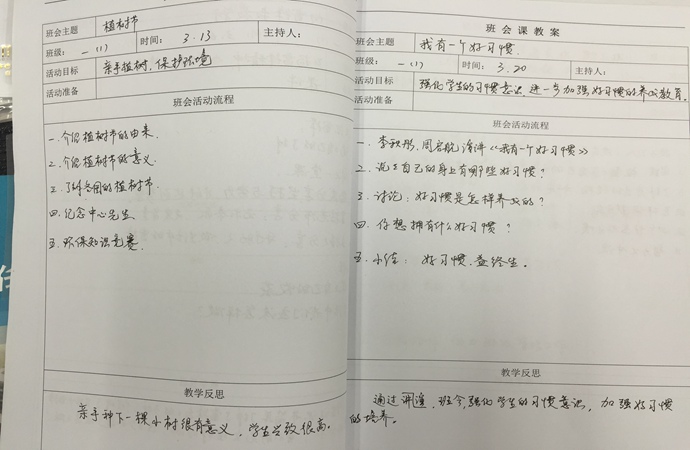 班会主题 植树节
班级： 一（1） 时间： 3.13 主持人：
活动目标 亲手植树，保护环境
活动准备
班会活动流程
一.介绍植树节的由来.
二.介绍植树节的意义.
三.了解各国的植树节.
四.纪念中山先生.
五.环保知识竞赛.
教学反思
亲手种下一棵小树很有意义，学生兴致很高。
班会课教案
班会主题 我有一个好习惯.
班级： 一（1） 时间： 3.20 主持人：
活动目标 强化学生的习惯意识，进一步加强好习惯的养成教育。
活动准备
班会活动流程
一.李秋彤，周启航演讲《我有一个好习惯》
2.说说自己的身上有哪些好习惯？
3.讨论：好习惯是怎样养成的？
四.你想拥有什么好习惯？
五.小结：好习惯，益终生。
教学反思
通过演讲，班会，强化学生的习惯意识，加强好习惯
的培养。